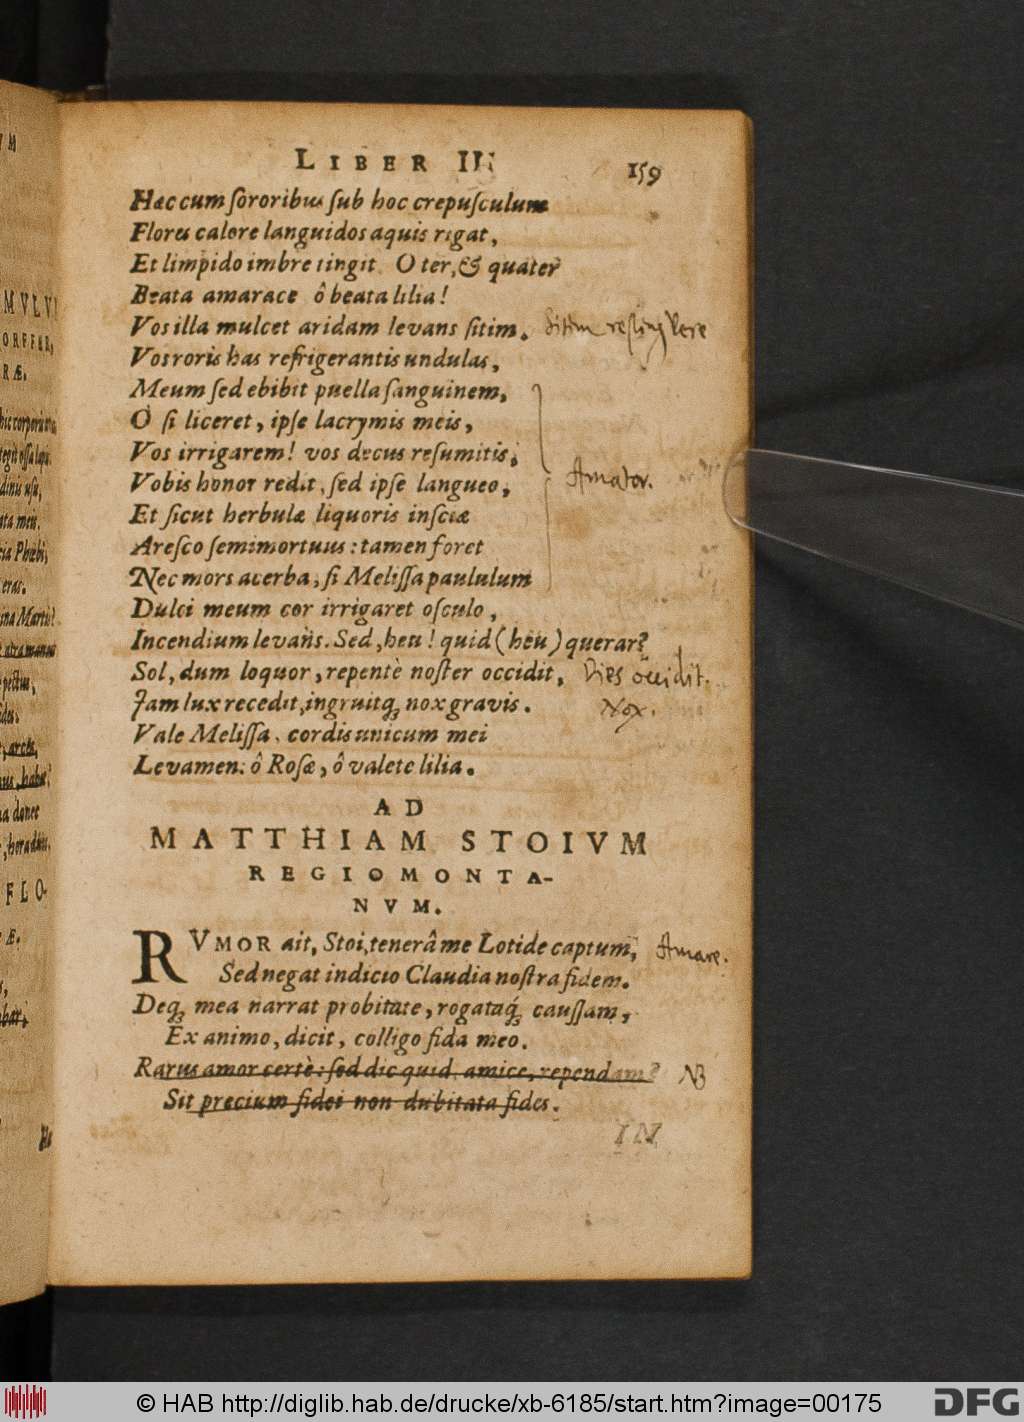 LIBER III
159
Hæc cum sororibus sub hoc crepusculum
Flores calore languidos aquis rigat,
Et limpido imbre tingit. O ter, & quater
Beata amarace ô beata lilia!
Vos illa mulcet aridam levans sitim. Sitim restingvere
Vos roris has refrigerantis undulas,
Meum sed ebibit puella sanguinem,
O si liceret, ipse lacrymis meis,
Vos irrigarem! vos decus resumitis,
Vobis honor redit, sed ipse langueo, Amator.
Et sicut herbulæ liquoris insciæ
Aresco semimortuus: tamen foret
Nec mors acerba, si Melissa paululum
Dulci meum cor irrigaret osculo,
Incendium levans. Sed, heu! quid (heu) querar?
Sol, dum loquor, repentè noster occidit, Dies occidit.
Jam lux recedit, ingruitq; nox gravis. Nox.
Vale Melissa, cordis unicum mei
Levamen: ô Rosæ, ô valete lilia.
AD
MATTHIAM STOIVM
REGIOMONTA-
NVM.
RVMOR ait, Stoi, tenerâ me Lotide captum, Amare.
Sed negat indicio Claudia nostra fidem.
Deq; mea narrat probitate, rogataq; caussam,
Ex animo, dicit, colligo fida meo.
Rarus amor certè: sed dic quid, amice, rependam? NB
Sit precium fidei non dubitata fides.
IN
MVLVI
ORFFER,
RÆ.
hic corpora
tegit ossa lapis.
dinis usu,
ata meis.
cia Phœbi,
eras.
ina Martis!
pectus,
, arcis,
na donec
FLO-
Æ.
© HAB http://diglib.hab.de/drucke/xb-6185/start.htm?image=00175
DFG